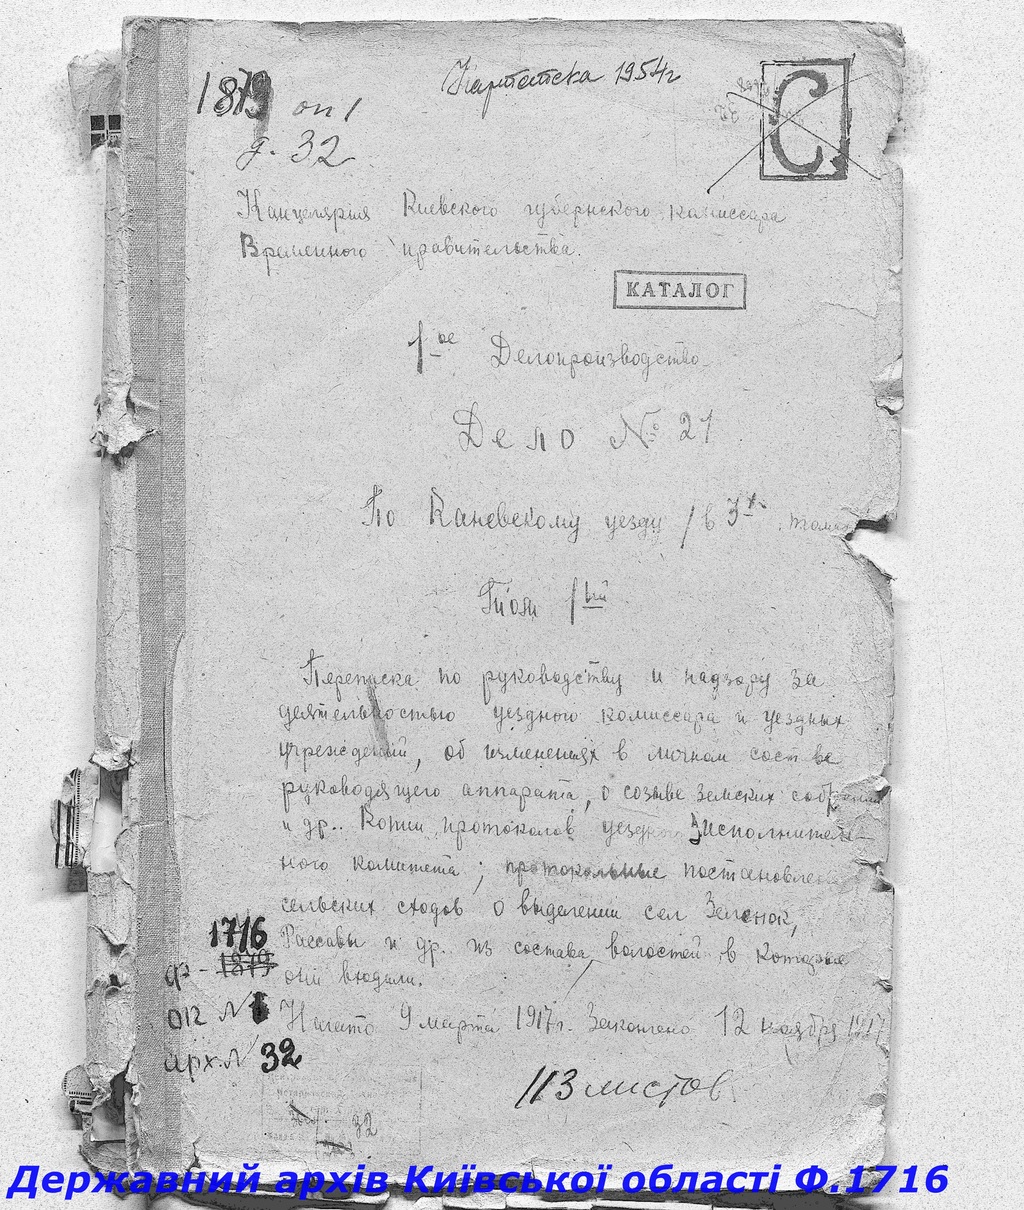 Картотека 1954г
1879 оп 1
д. 32
С
Канцелярия Киевского губернского комиссара
Временного правительства.
КАТАЛОГ
1-ое Делопроизводство
Дело № 21
По Каневскому уезду / в 3х томах
Том 1-ый
Переписка по руководству и надзору за
деятельностью уездного комиссара и уездных
учреждений, об изменениях в личном составе
руководящего аппарата, о созыве земских собраний
и др.. Копии протоколов уездного исполнитель-
ного комитета; протокольные постановления
сельских сходов о выделении сел Зеленок,
Рассавы и др. из состава волостей в которые
они входили.
1716
ф - 1879
оп № 1
арх. № 32
Начато 9 марта 1917г. Закончено 12 ноября 1917
113 листов
32
Державний архів Київської області Ф.1716